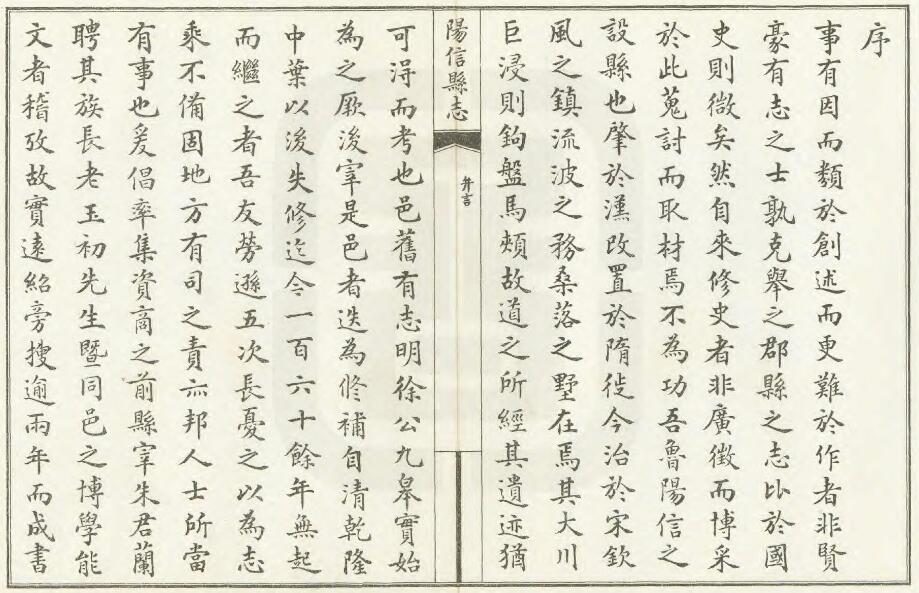 序
事有因而類於創述而更難於作者非賢
豪有志之士孰克舉之郡縣之志比於國
史則微矣然自來修史者非廣徵而博采
於此蒐討而取材焉不為功吾魯陽信之
設縣也肇於漢改置於隋徙今治於宋欽
風之鎮流波之務桑落之墅在焉其大川
巨浸則鉤盤馬頰故道之所經其遺迹猶
陽信縣志
弁言
可淂而考也邑舊有志明徐公九皋實始
為之厥後宰是邑者迭為修補自清乾隆
中葉以後失修迄今一百六十餘年無起
而繼之者吾友勞遜五次長憂之以為志
乘不備固地方有司之責亦邦人士所當
有事也爰倡率集資商之前縣宰朱君蘭
聘其族長老玉初先生暨同邑之博學能
文者稽攷故實遠紹旁搜逾兩年而成書